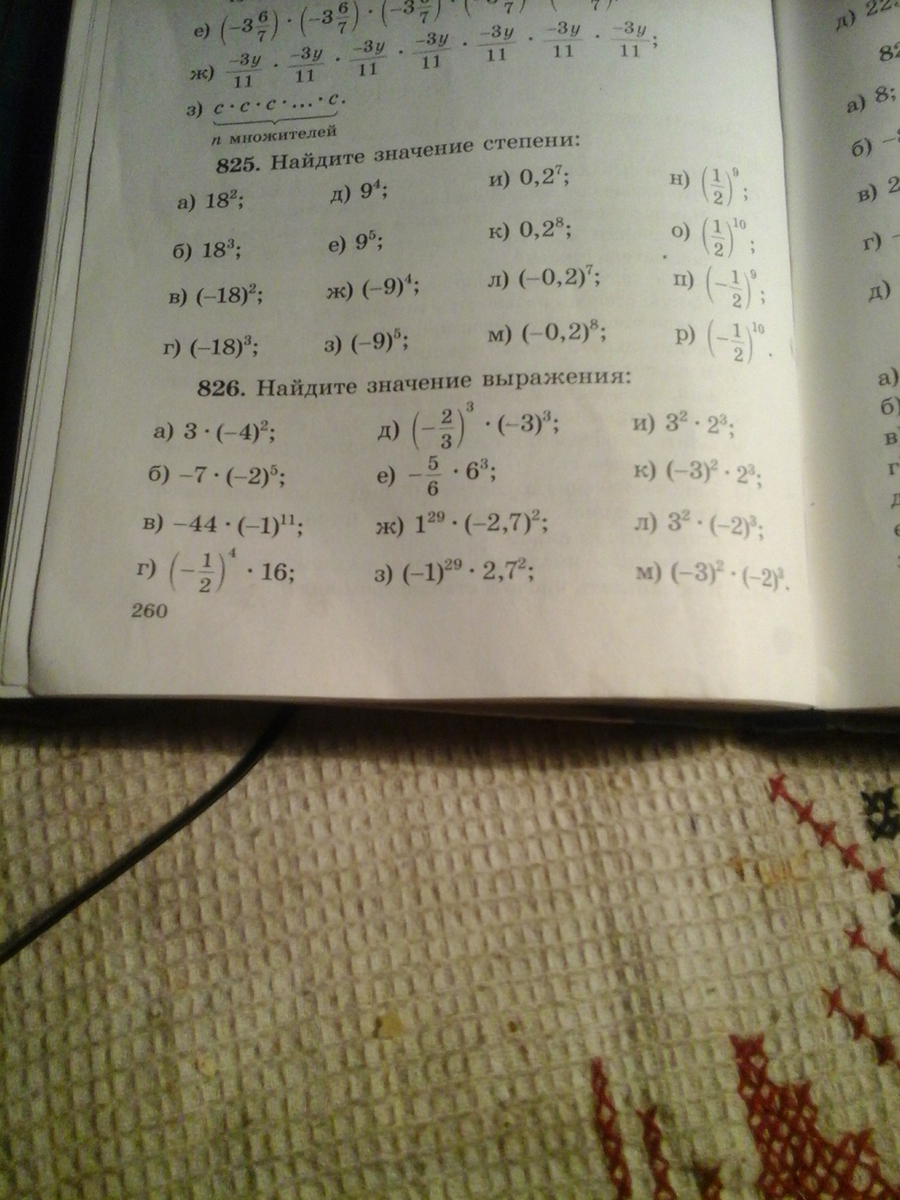 е) (−3 6/7) · (−3 6/7) ·
ж) −3y/11 · −3y/11 · −3y/11 · −3y/11 · −3y/11 · −3y/11 · −3y/11;
з) c · c · c · ... · c.
n множителей
825. Найдите значение степени:
а) 18²; д) 9⁴; и) 0,2⁷; н) (1/2)⁹;
б) 18³; е) 9⁵; к) 0,2⁸; о) (1/2)¹⁰;
в) (−18)²; ж) (−9)⁴; л) (−0,2)⁷; п) (−1/2)⁹;
г) (−18)³; з) (−9)⁵; м) (−0,2)⁸; р) (−1/2)¹⁰.
826. Найдите значение выражения:
а) 3 · (−4)²; д) (−2/3)³ · (−3)³; и) 3² · 2³;
б) −7 · (−2)⁵; е) −5/6 · 6³; к) (−3)² · 2³;
в) −44 · (−1)¹¹; ж) 1²⁹ · (−2,7)²; л) 3² · (−2)³;
г) (−1/2)⁴ · 16; з) (−1)²⁹ · 2,7²; м) (−3)² · (−2)³.
260
а) 8;
б)
в) 2
г)
д)
а)
б)
в)